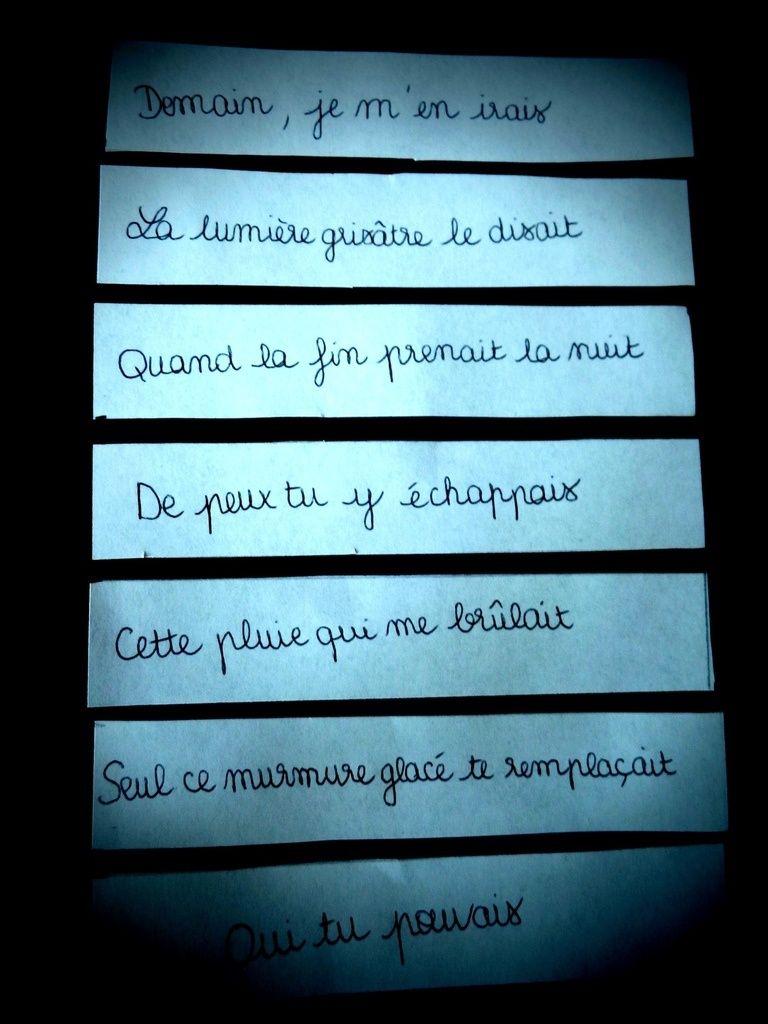 Demain, je m'en irais
La lumière grisâtre le disait
Quand la fin prenait la nuit
De peux tu y échappais
Cette pluie qui me brûlait
Seul ce murmure glacé te remplaçait
Oui tu pouvais